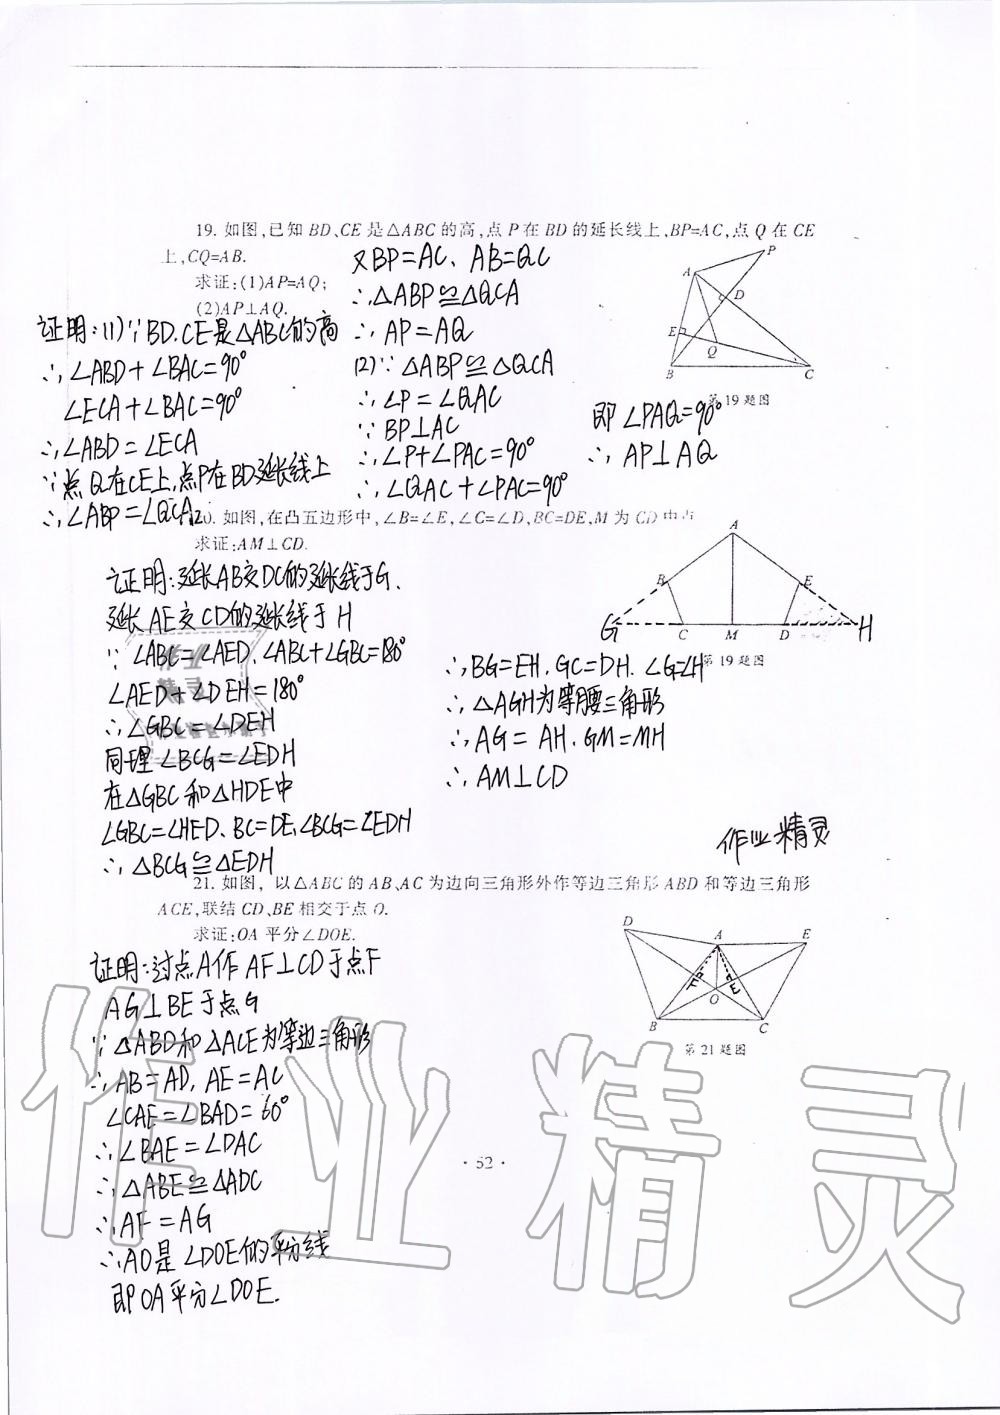 19. 如图,已知 BD、CE 是△ABC 的高,点 P 在 BD 的延长线上,BP=AC,点 Q 在 CE
上,CQ=AB.
求证:(1)AP=AQ;
(2)AP⊥AQ.
证明:(1)∵BD.CE是△ABC的高
∴∠ABD+∠BAC=90°
∠ECA+∠BAC=90°
∴∠ABD=∠ECA
∵点Q在CE上,点P在BD延长线上
∴∠ABP=∠QCA
又BP=AC、AB=QC
∴△ABP≌△QCA
∴AP=AQ
(2)∵△ABP≌△QCA
∴∠P=∠QAC
∵BP⊥AC
∴∠P+∠PAC=90°
∴∠QAC+∠PAC=90°
即∠PAQ=90°
∴AP⊥AQ
P
A
D
E
Q
B
C
第19题图
20. 如图,在凸五边形中,∠B=∠E,∠C=∠D,BC=DE,M 为 CD 中点
求证:AM⊥CD.
证明:延长AB交DC的延长线于G.
延长AE交CD的延长线于H
∵∠ABC=∠AED.∠ABC+∠GBC=180°
∠AED+∠DEH=180°
∴∠GBC=∠DEH
同理∠BCG=∠EDH
在△GBC和△HDE中
∠GBC=∠HED、BC=DE、∠BCG=∠EDH
∴△BCG≌△EDH
∴BG=EH.GC=DH.∠G=∠H
∴△AGH为等腰三角形
∴AG=AH.GM=MH
∴AM⊥CD
A
B
E
G
C
M
D
H
第19题图
作业精灵
21. 如图, 以△ABC 的 AB、AC 为边向三角形外作等边三角形 ABD 和等边三角形
ACE,联结 CD、BE 相交于点 O.
求证:OA 平分∠DOE.
证明:过点A作AF⊥CD于点F
AG⊥BE于点G
∵△ABD和△ACE为等边三角形
∴AB=AD,AE=AC
∠CAE=∠BAD=60°
∴∠BAE=∠DAC
∴△ABE≌△ADC
∴AF=AG
∴AO是∠DOE的平分线
即OA平分∠DOE.
D
A
E
F
O
B
C
第21题图
· 52 ·
作业精灵